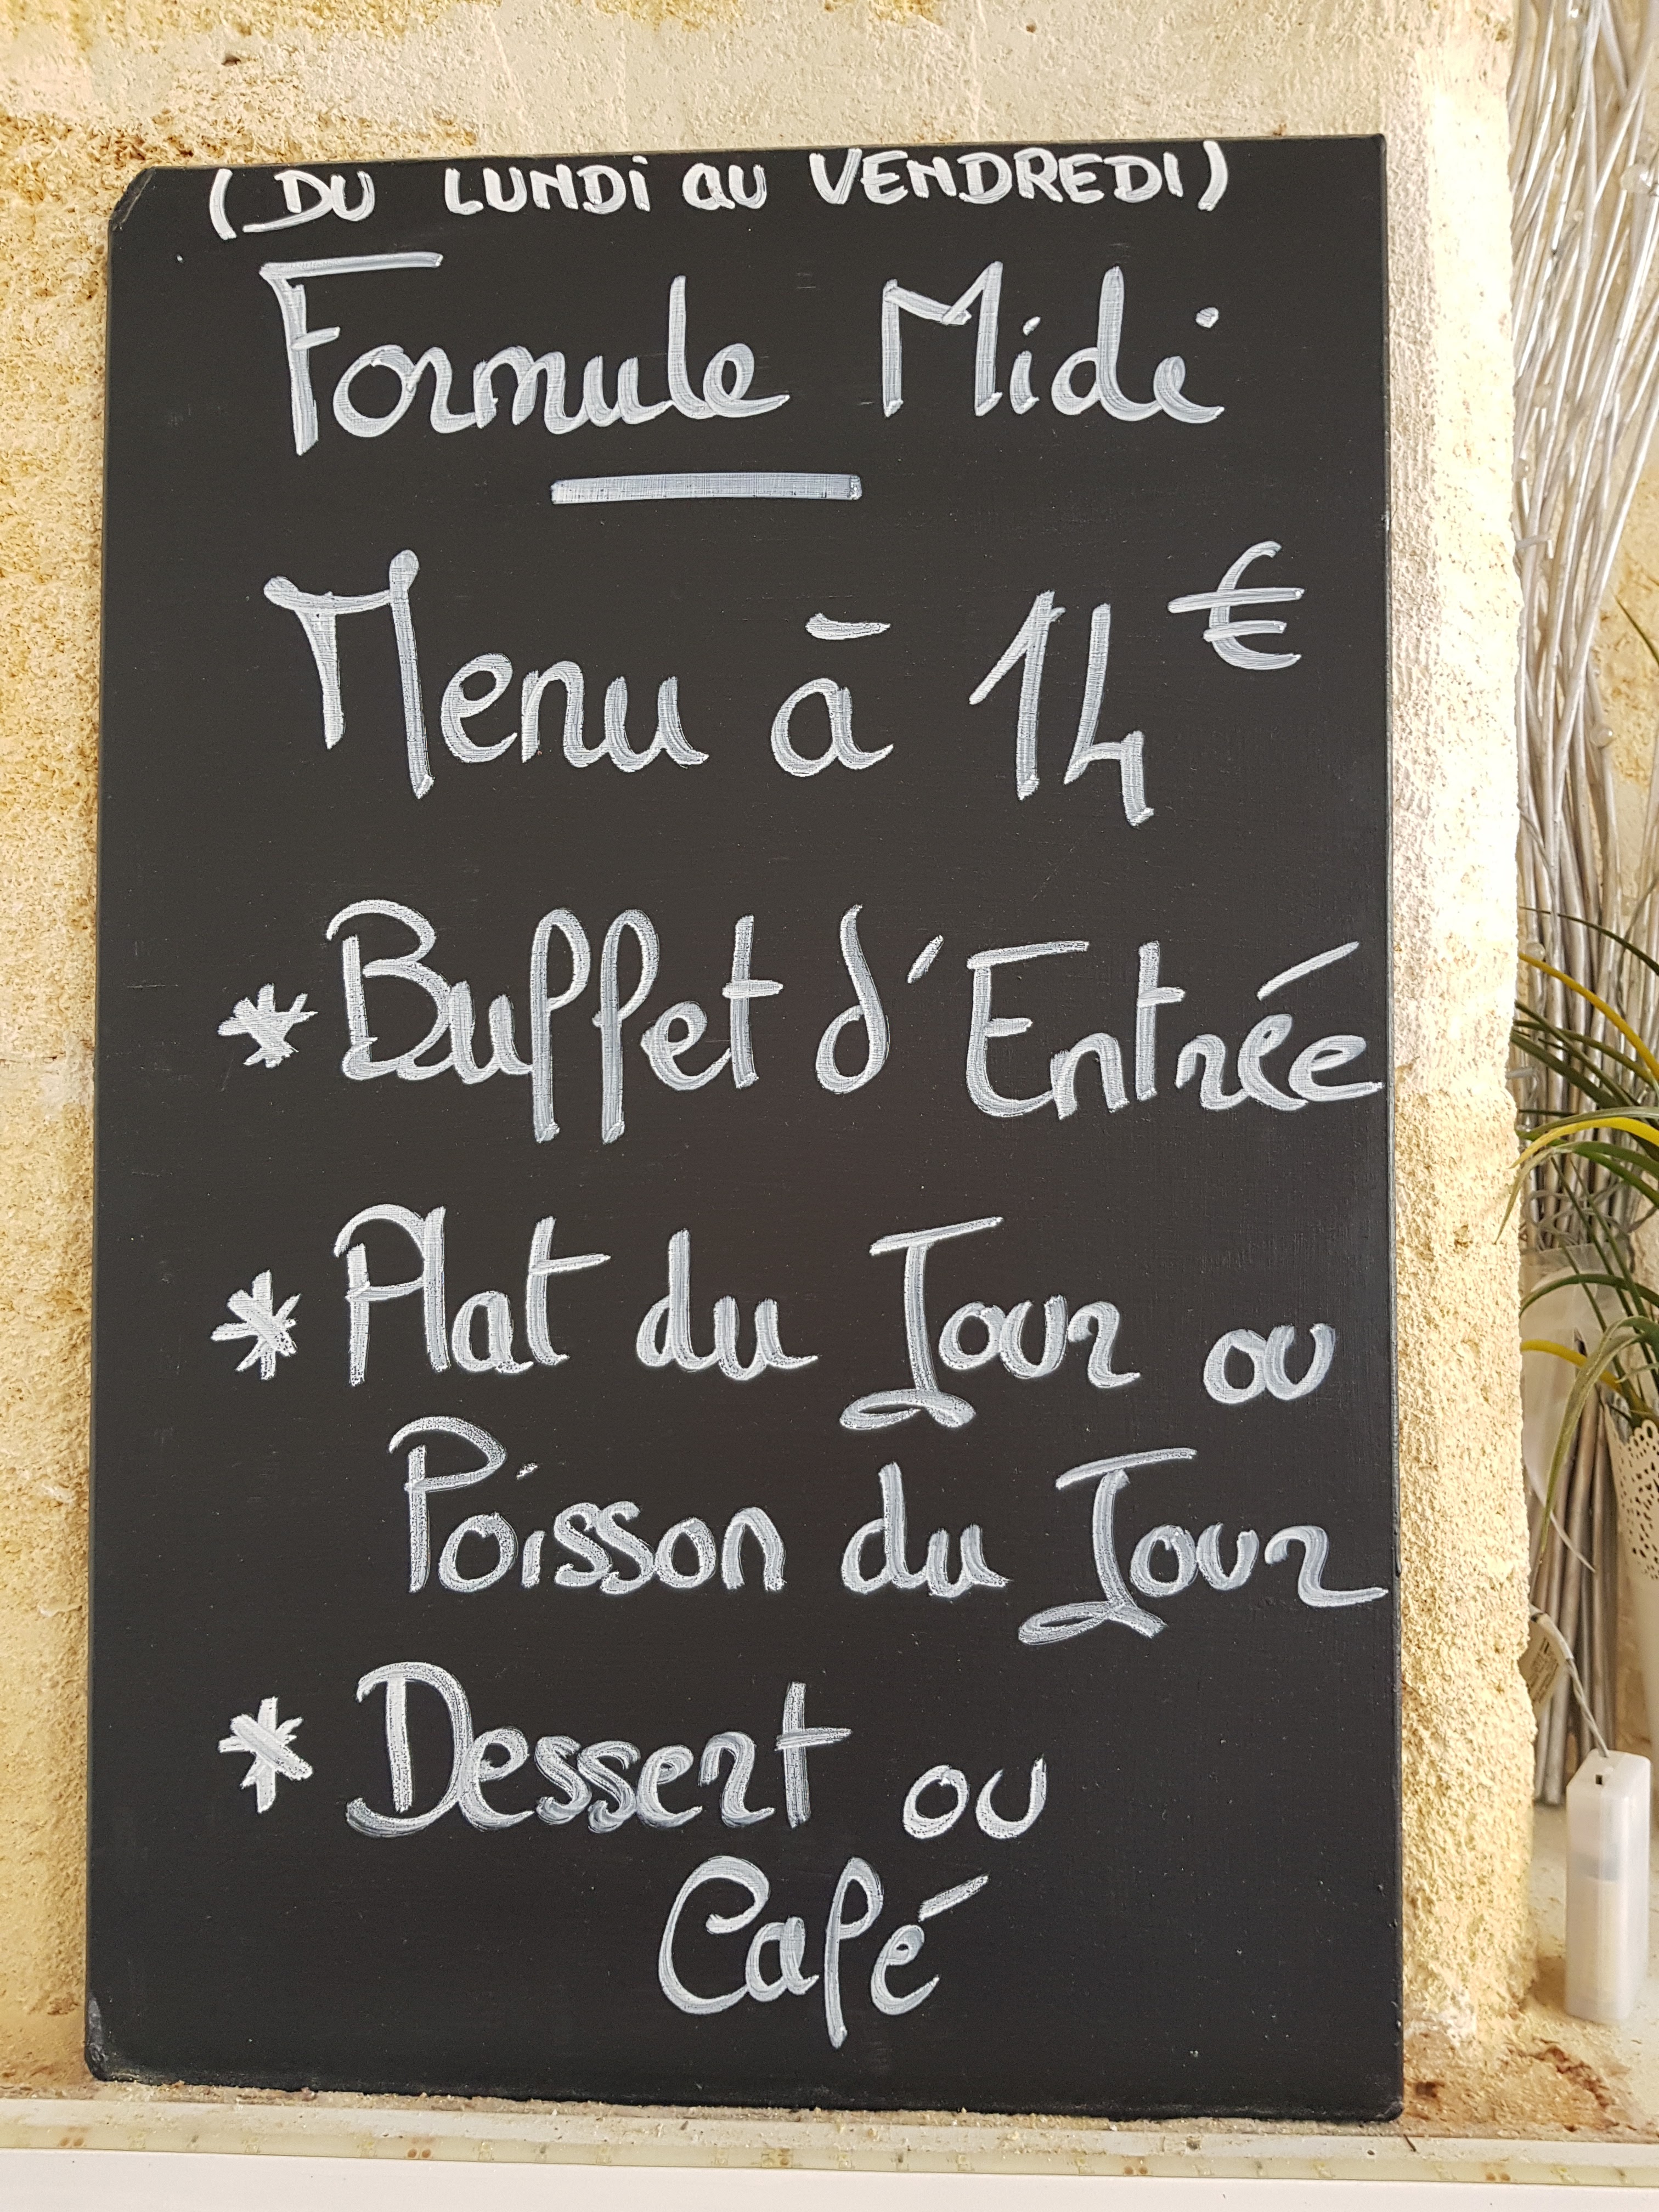 (DU LUNDi au VENDREDI)
Formule Midi
Menu à 14€
* Buffet d'Entrée
* Plat du Jour ou
Poisson du Jour
* Dessert ou
Café